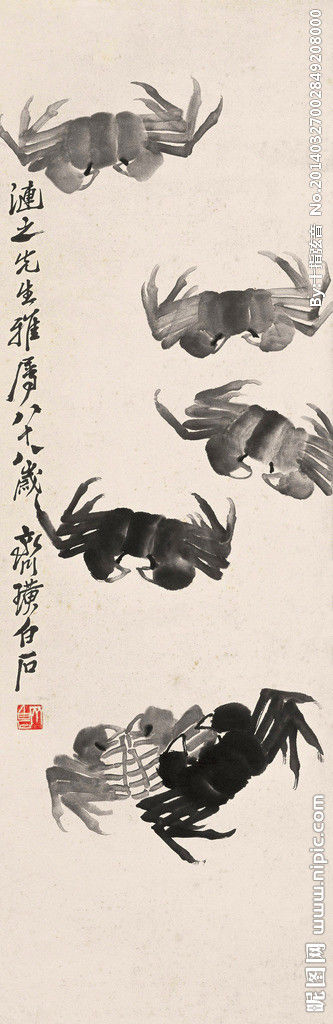 漣之先生雅属八十八歲齐璜白石
By:十指弦音 No.20140327002849208000
昵图网 www.nipic.com